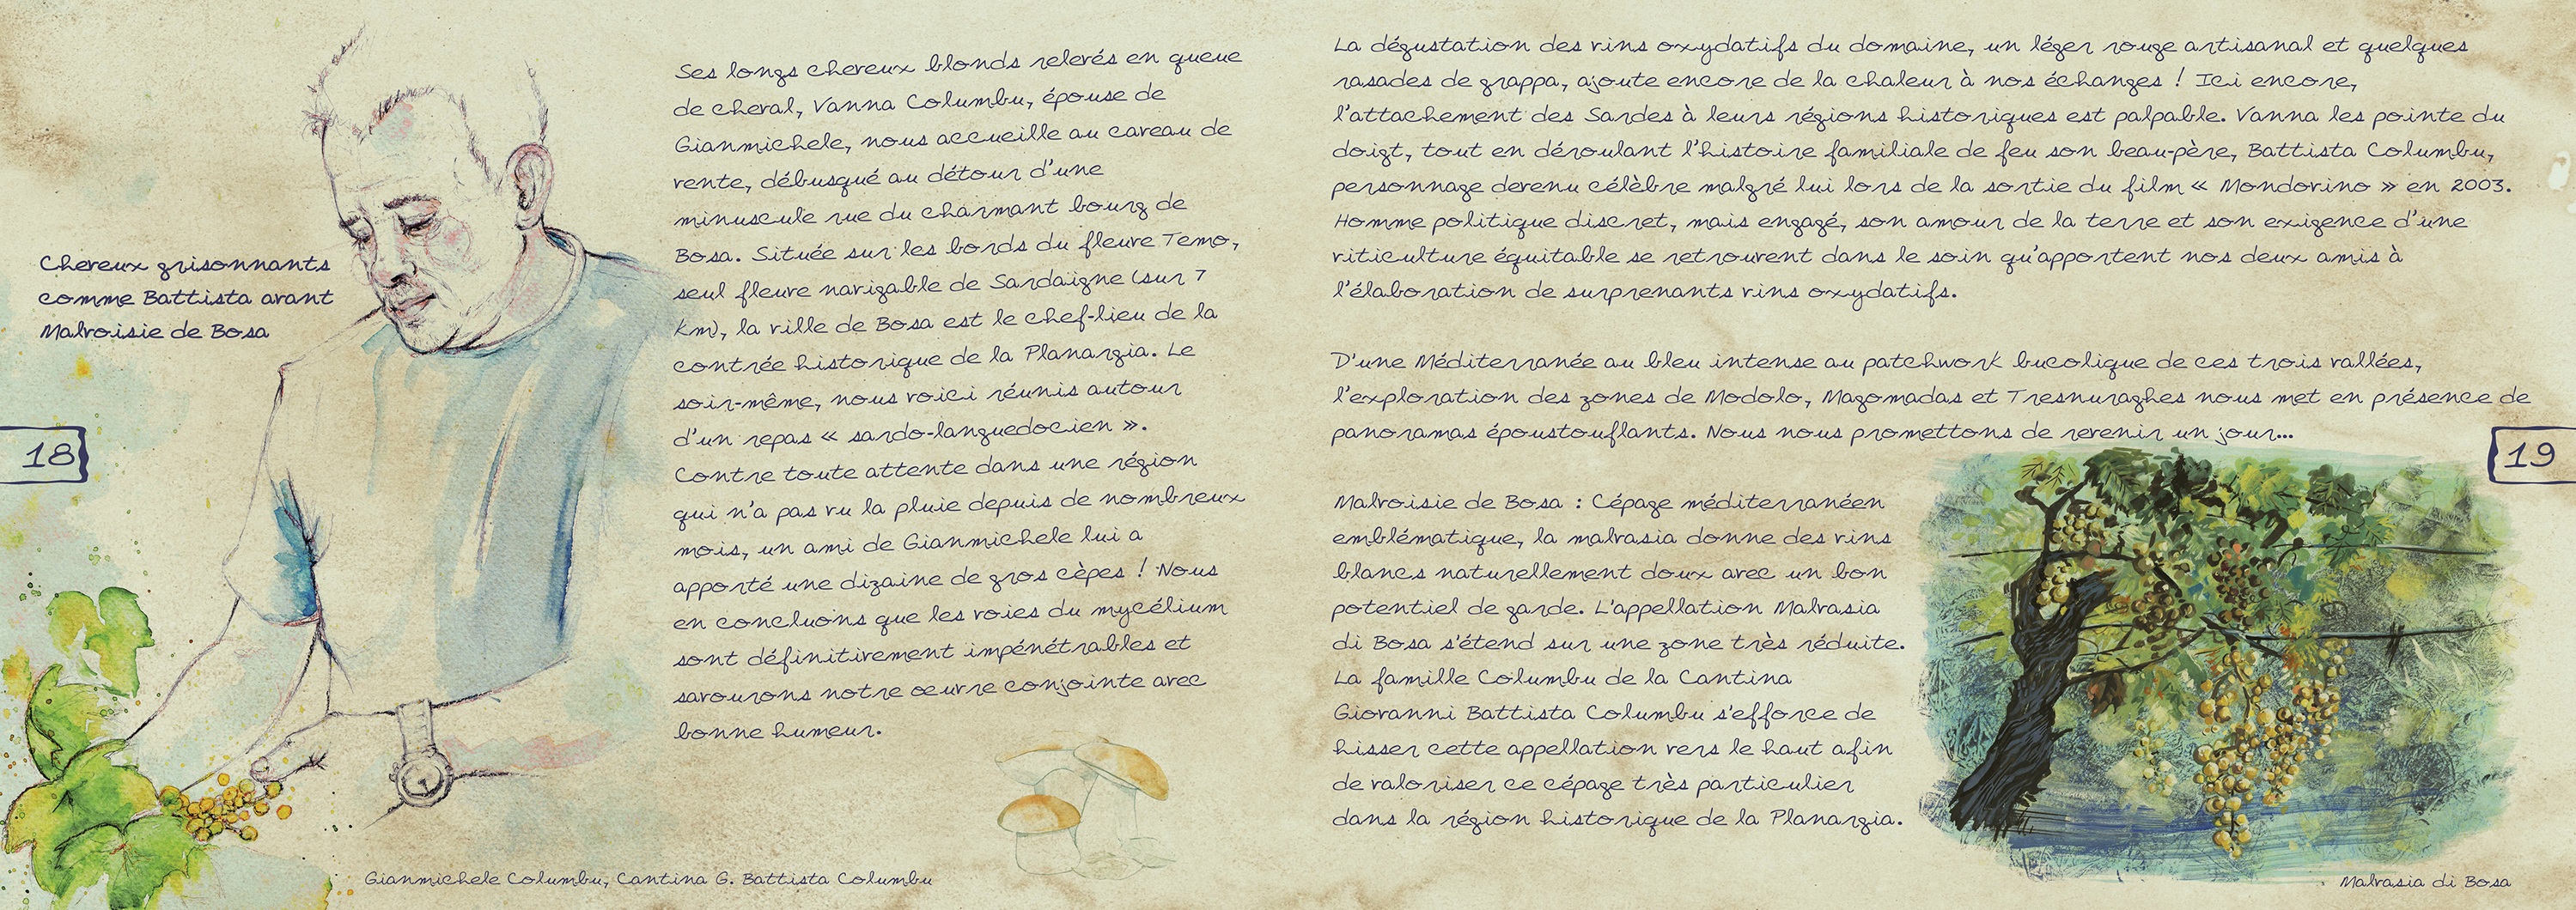 Cheveux grisonnants
comme Battista avant
Malvoisie de Bosa
18
Ses longs cheveux blonds relevés en queue
de cheval, Vanna Columbu, épouse de
Gianmichele, nous accueille au caveau de
vente, débusqué au détour d'une
minuscule rue du charmant bourg de
Bosa. Située sur les bords du fleuve Temo,
seul fleuve navigable de Sardaigne (sur 7
km), la ville de Bosa est le chef-lieu de la
contrée historique de la Planargia. Le
soir-même, nous voici réunis autour
d'un repas « sardo-languedocien ».
Contre toute attente dans une région
qui n'a pas vu la pluie depuis de nombreux
mois, un ami de Gianmichele lui a
apporté une dizaine de gros cèpes ! Nous
en concluons que les voies du mycélium
sont définitivement impénétrables et
savourons notre œuvre conjointe avec
bonne humeur.
Gianmichele Columbu, Cantina G. Battista Columbu
La dégustation des vins oxydatifs du domaine, un léger rouge artisanal et quelques
rasades de grappa, ajoute encore de la chaleur à nos échanges ! Ici encore,
l'attachement des Sardes à leurs régions historiques est palpable. Vanna les pointe du
doigt, tout en déroulant l'histoire familiale de feu son beau-père, Battista Columbu,
personnage devenu célèbre malgré lui lors de la sortie du film « Mondovino » en 2003.
Homme politique discret, mais engagé, son amour de la terre et son exigence d'une
viticulture équitable se retrouvent dans le soin qu'apportent nos deux amis à
l'élaboration de surprenants vins oxydatifs.
D'une Méditerranée au bleu intense au patchwork bucolique de ces trois vallées,
l'exploration des zones de Modolo, Magomadas et Tresnuraghes nous met en présence de
panoramas époustouflants. Nous nous promettons de revenir un jour...
19
Malvoisie de Bosa : Cépage méditerranéen
emblématique, la malvasia donne des vins
blancs naturellement doux avec un bon
potentiel de garde. L'appellation Malvasia
di Bosa s'étend sur une zone très réduite.
La famille Columbu de la Cantina
Giovanni Battista Columbu s'efforce de
hisser cette appellation vers le haut afin
de valoriser ce cépage très particulier
dans la région historique de la Planargia.
Malvasia di Bosa